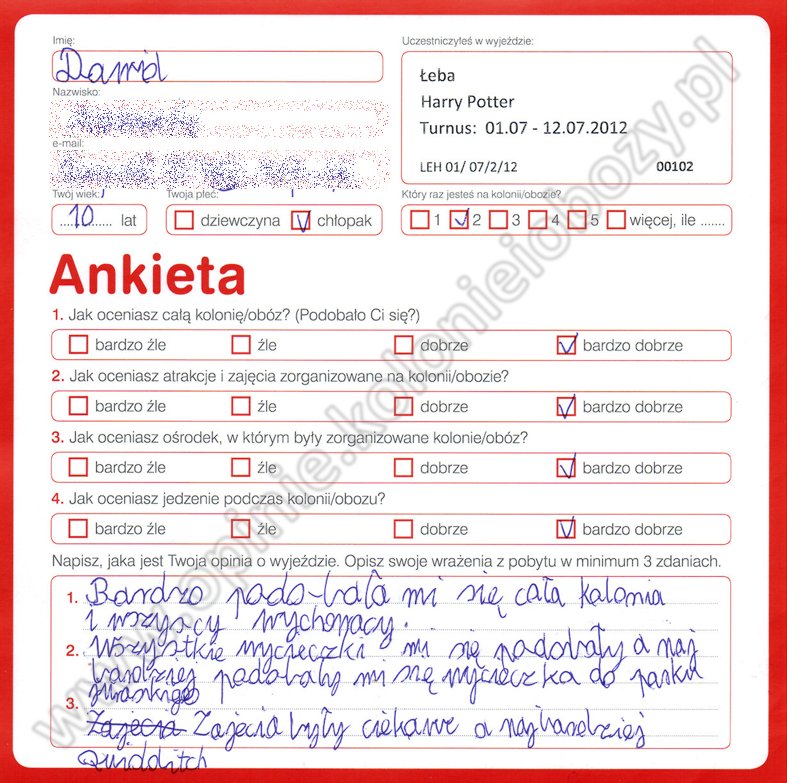 Imię:
Dawid
Nazwisko:
e-mail:
Twój wiek:
10 lat
Twoja płeć:
dziewczyna chłopak
Uczestniczyłeś w wyjeździe:
Łeba
Harry Potter
Turnus: 01.07 - 12.07.2012
LEH 01/ 07/2/12 00102
Który raz jesteś na kolonii/obozie?
1 2 3 4 5 więcej, ile .......
Ankieta
1. Jak oceniasz całą kolonię/obóz? (Podobało Ci się?)
bardzo źle źle dobrze bardzo dobrze
2. Jak oceniasz atrakcje i zajęcia zorganizowane na kolonii/obozie?
bardzo źle źle dobrze bardzo dobrze
3. Jak oceniasz ośrodek, w którym były zorganizowane kolonie/obóz?
bardzo źle źle dobrze bardzo dobrze
4. Jak oceniasz jedzenie podczas kolonii/obozu?
bardzo źle źle dobrze bardzo dobrze
Napisz, jaka jest Twoja opinia o wyjeździe. Opisz swoje wrażenia z pobytu w minimum 3 zdaniach.
1. Bardzo podo-bała mi się cała kolonia
i wszyscy wychowacy.
2. Wszystkie wycieczki mi się podobały a naj
bardziej podobały mi się wycieczka do parku
juraskigo
3. Zajecia Zajecia były ciekawe a najbardziej
Quidditch
www.opinie.kolonieiobozy.pl